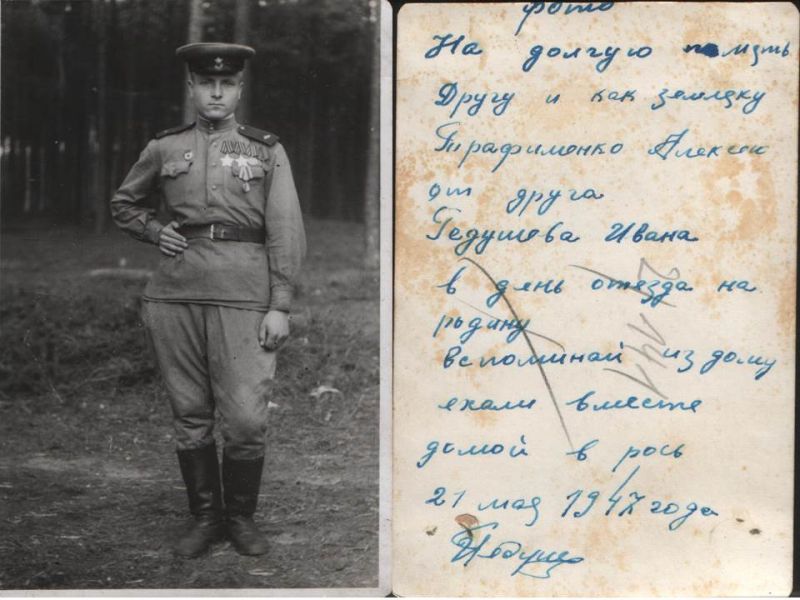 фото
На долгую помять
Другу и как земляку
Трафименко Алексею
от друга
Гедушева Ивана
в день отезда на
родину
вспоминай из дому
ехали вместе
домой в рось
21 мая 1947 года